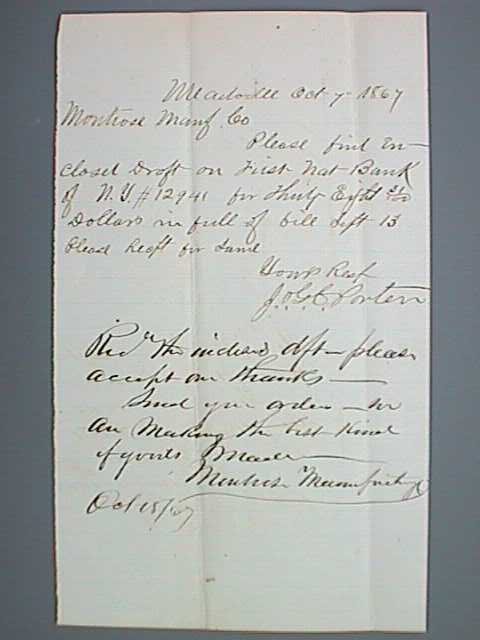 Meadville Oct 7 - 1867
Montrose Manf. Co
Please find En-
closed Draft on First Nat Bank
of N.Y. # 12941 for Thirty Eight
Dollars in full of bill Sept 13
Please Recpt for Same
Yours Resp
J. & G. C. Porter
Recd the inclosed dft - please
accept our thanks —
Send your orders - we
are Making the best Kind
of goods Made —
Montrose Manufacturing
Oct 15/67